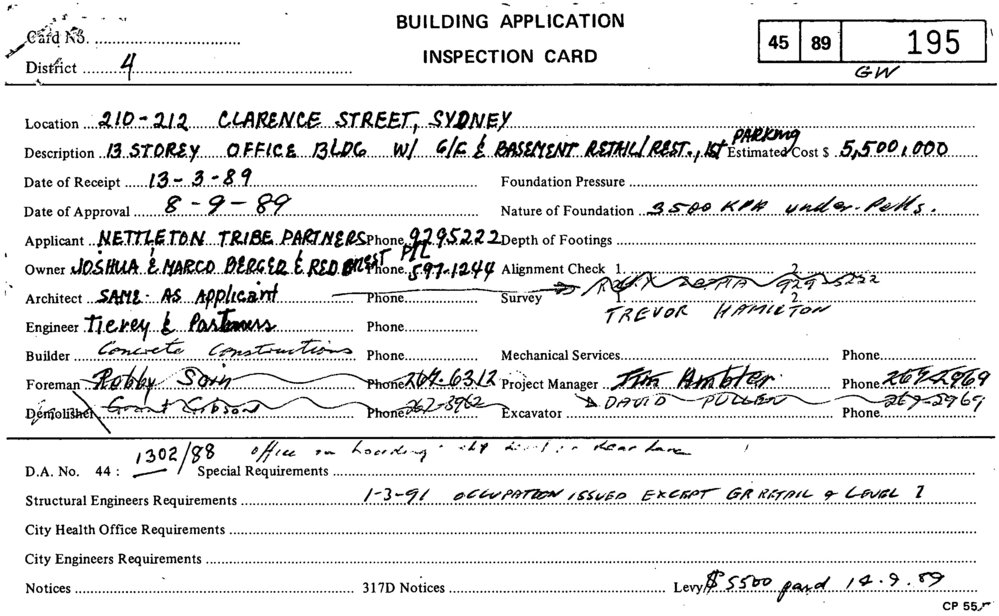 BUILDING APPLICATION
INSPECTION CARD
Card No.
District 4
45 89 195
GW
Location 210-212 CLARENCE STREET, SYDNEY
PARKING
Description 13 STOREY OFFICE BLDG W/ G/F & BASEMENT RETAIL/REST., 1st Estimated Cost $ 5,500,000
Date of Receipt 13-3-89 Foundation Pressure
Date of Approval 8-9-89 Nature of Foundation 3500 KPA under
Applicant NETTLETON TRIBE PARTNERS Phone 9295222 Depth of Footings
Owner JOSHUA & MARCO BERGER & RED P/L Phone 597-1244 Alignment Check 1. 2
Architect SAME AS Applicant Phone Survey 1 2 929-5222
TREVOR HAMILTON
Engineer & Partners Phone
Builder Concrete Constructions Phone Mechanical Services Phone
Foreman Robby Phone 267-6312 Project Manager Jim Ambler Phone 267-2969
Demolisher Grant Gibson Phone 262-3962 Excavator DAVID PULLEN Phone 267-2969
D.A. No. 44: 1302/88 Special Requirements office on hoarding
Structural Engineers Requirements 1-3-91 OCCUPATION ISSUED EXCEPT GR RETAIL & LEVEL 7
City Health Office Requirements
City Engineers Requirements
Notices 317D Notices Levy $5500 paid 14.9.89
CP 55